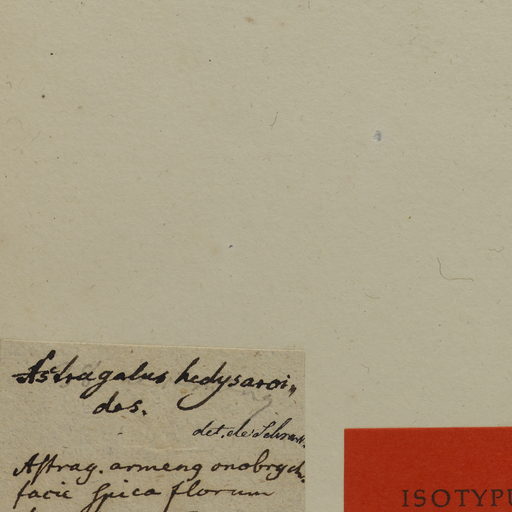 Astragalus hedysaroi„
des.
det. de Schrank.
Astrag. armeng onobrych.
facie spica florum
ISOTYPU